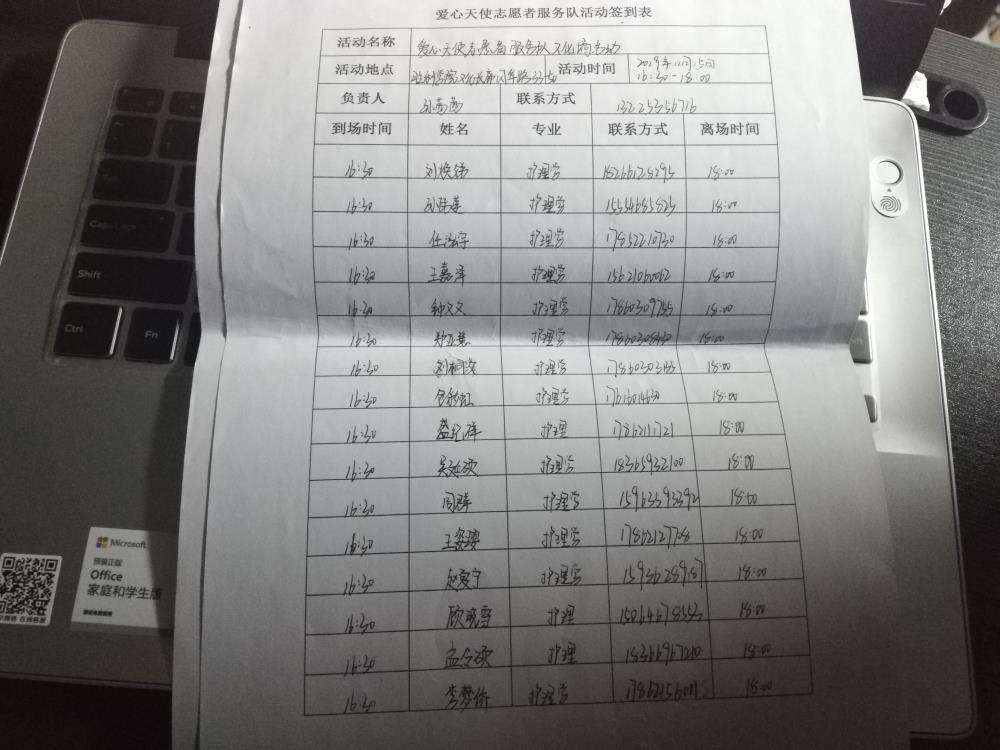 爱心天使志愿者服务队活动签到表
活动名称 爱心天使志愿者服务队文化墙活动
活动地点 活动时间 2019年11月15日 16:30-18:00
负责人 联系方式 13225356716
到场时间 姓名 专业 联系方式 离场时间
16:30 刘焕绨 护理学 18266128295 18:00
16:30 护理学 15554685825 18:00
16:30 任泓宇 护理学 17852210730 18:00
16:30 王嘉泽 护理学 15621060062 18:00
16:30 钟文文 护理学 17860309755 18:00
16:30 郑亚慧 护理学 18:00
16:30 刘桐汝 护理学 18:00
16:30 护理学 18:00
16:30 护理 17862111721 18:00
16:30 护理学 18365932100 18:00
16:30 周群 护理学 15963393392 18:00
16:30 护理学 17862127708 18:00
16:30 赵爱宁 护理学 18:00
16:30 顾晓雪 护理 15064678553 18:00
16:30 孟令硕 护理 18366967210 18:00
16:30 李梦娇 护理学 18:00
Caps Lock
Shift
Ctrl
Fn
Microsoft
预装正版
Office
家庭和学生版
在线客服